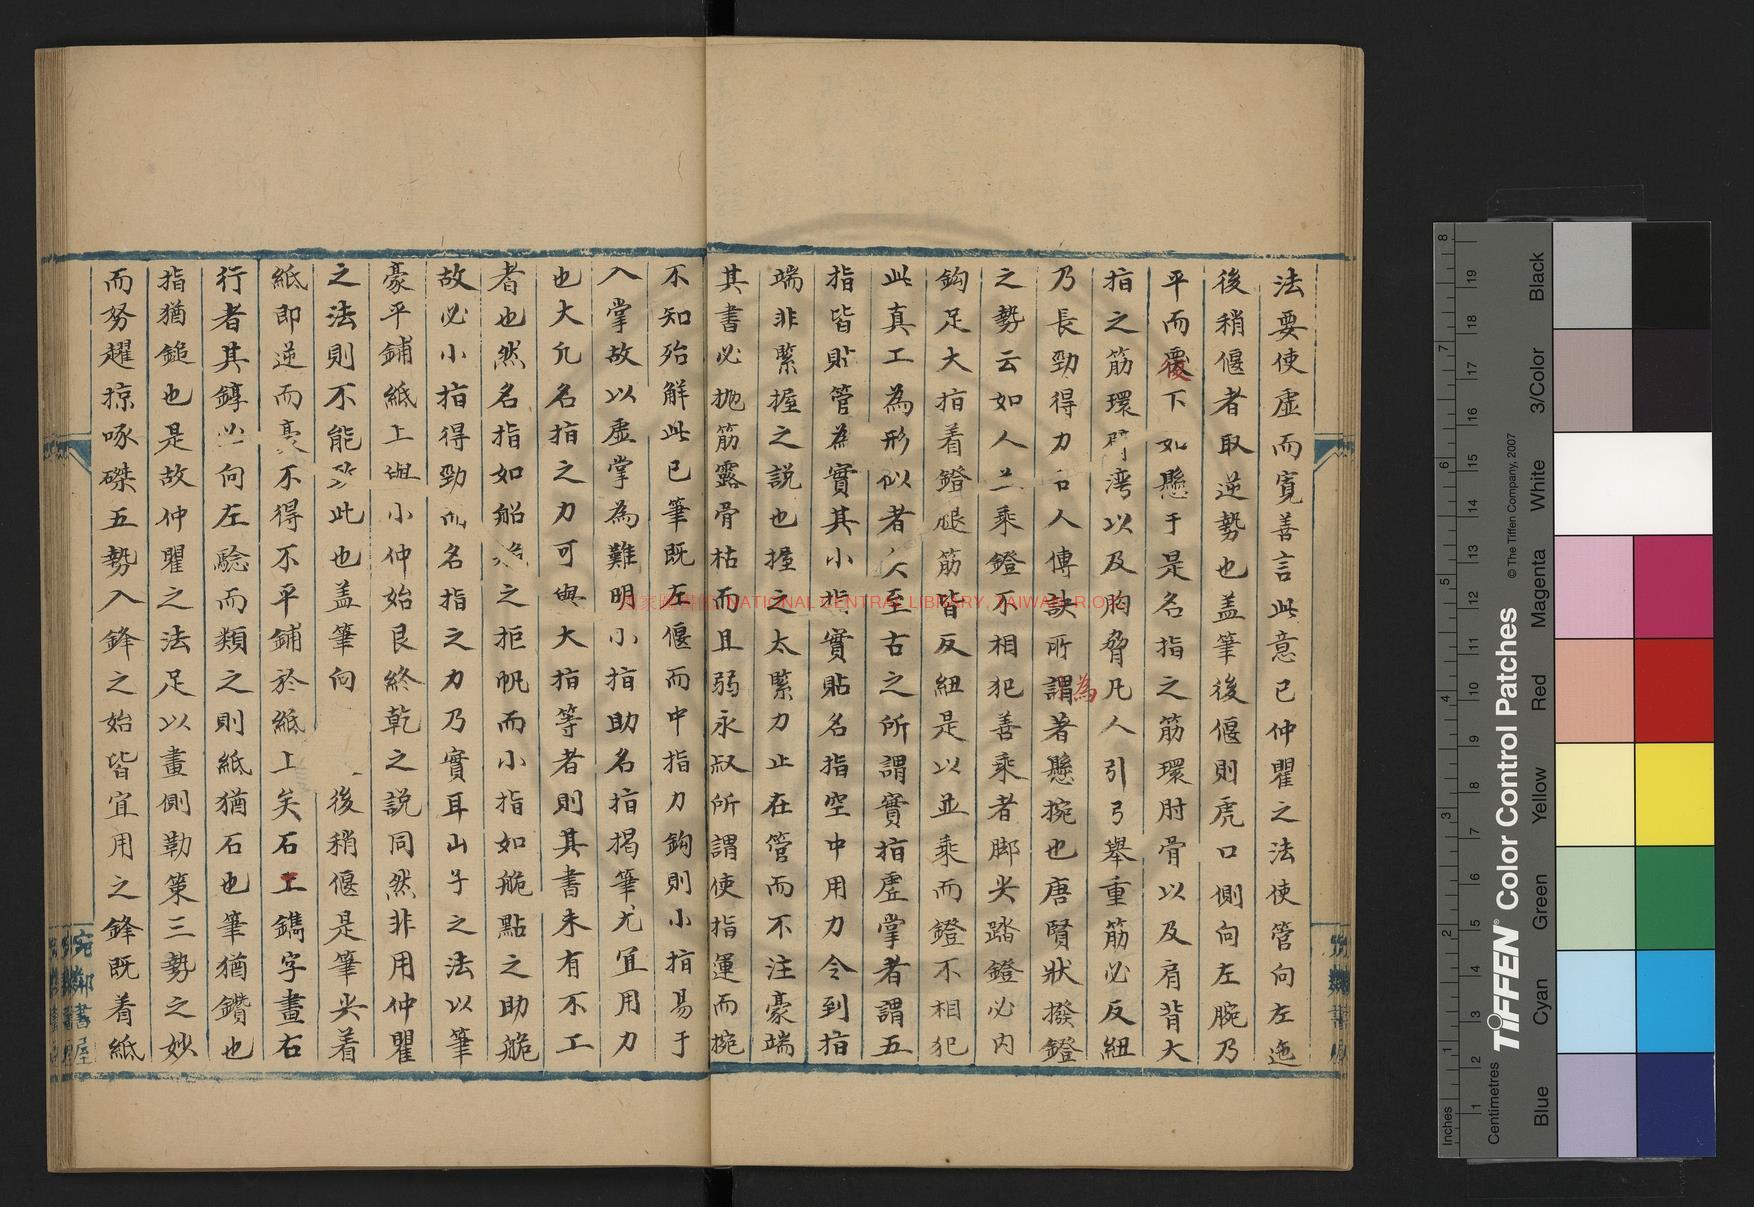 法要使虛而寬善言此意已仲瞿之法使管向左迤
後稍偃者取逆勢也盖筆後偃則虎口側向左腕乃
平而覆下如懸于是名指之筋環肘骨以及肩背大
後
指之筋環臂灣以及胸脅凡人引弓舉重筋必反紐
乃長勁得力古人傳訣所謂著懸捥也唐賢狀撥鐙
為
之勢云如人並乘鐙不相犯善乘者脚尖踏鐙必内
鈎足大指着鐙腿筋皆反紐是以並乘而鐙不相犯
此真工為形似者矣至古之所謂實指虛掌者謂五
指皆貼管為實其小指實貼名指空中用力令到指
端非緊握之說也握之太緊力止在管而不注豪端
其書必拋筋露骨枯而且弱永叔所謂使指運而捥
不知殆解此已筆既左偃而中指力鈎則小指易于
入掌故以虛掌為難明小指助名指揭筆尤宜用力
也大凡名指之力可與大指等者則其書未有不工
者也然名指如船之拒帆而小指如舵點之助舵
故必小指得勁而名指之力乃實耳山子之法以筆
豪平鋪紙上與小仲始艮終乾之說同然非用仲瞿
之法則不能致此也盖筆向後稍偃是筆尖着
紙即逆而豪不得不平鋪於紙上矣石工鐫字畫右
行者其錞必向左驗而類之則紙猶石也筆猶鑽也
指猶鎚也是故仲瞿之法足以畫側勒策三勢之妙
而努趯掠啄磔五勢入鋒之始皆宜用之鋒既着紙
宛鄰書屋
國家圖書館 NATIONAL CENTRAL LIBRARY, TAIWAN R.O.C
TIFFEN® Color Control Patches
© The Tiffen Company, 2007
Inches
1 2 3 4 5 6 7 8
Centimetres
1 2 3 4 5 6 7 8 9 10 11 12 13 14 15 16 17 18 19
Blue
Cyan
Green
Yellow
Red
Magenta
White
3/Color
Black